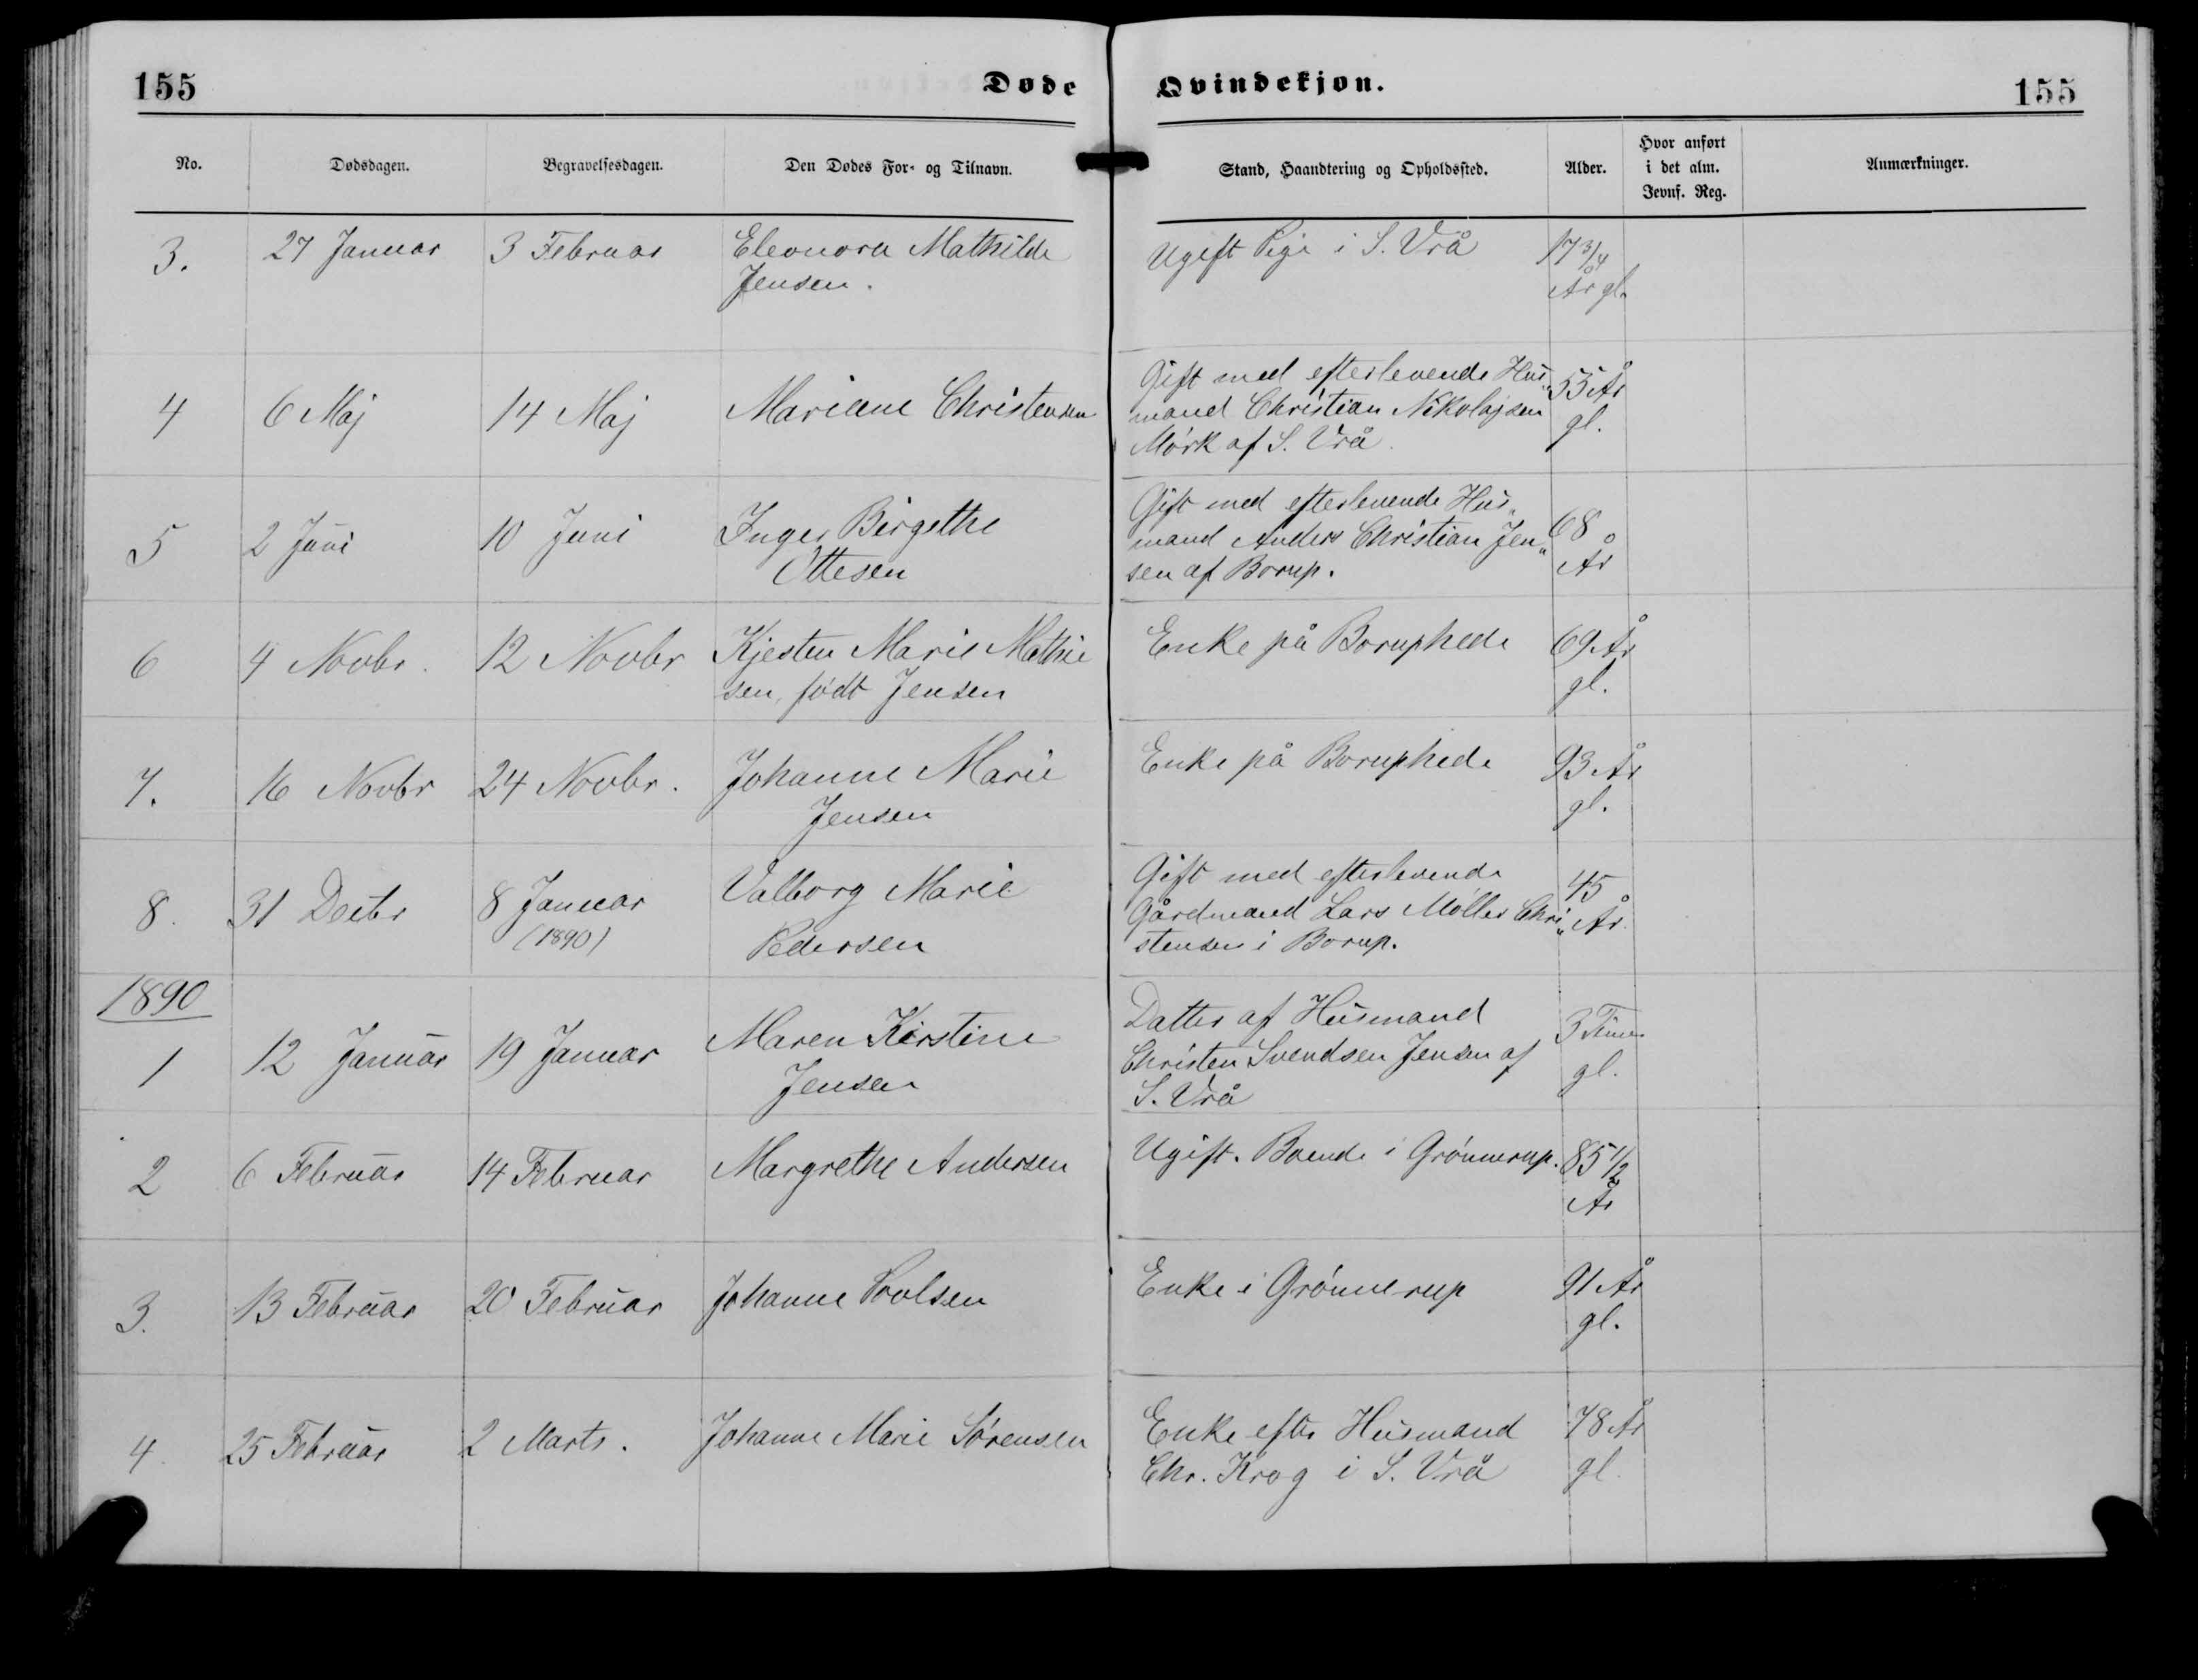 155 Døde Qvindekjøn. 155
No. Dødsdagen. Begravelsesdagen. Den Dødes For- og Tilnavn. Stand, Haandtering og Opholdssted. Alder. Hvor anført i det alm. Jevnf. Reg. Anmærkninger.
3. 27 Januar 3 Februar Eleonora Mathilde Ugift Pige i S. Vrå 17 3/4
Jensen. År gl.
Gift med efterlevende Hus„ 55 År
4 6 Maj 14 Maj Mariane Christensen mand Christian Nikolajsen gl.
Mörk af S. Vrå.
Gift med efterlevende Hus„
5 2 Juni 10 Juni Inger Birgethe mand Anders Christian Jen„ 68
Ottesen sen af Borup. År
6 4 Novbr. 12 Novbr Kjesten Marie Mathie Enke på Boruphede 69 År
sen, född Jensen gl.
7. 16 Novbr 24 Novbr. Johanne Marie Enke på Boruphede 93 År
Jensen gl.
Gift med efterlevende 45
8. 31 Decbr 8 Januar Valborg Marie Gårdmand Lars Möller Chri„ År.
(1890) Pedersen stensen i Borup.
1890
Datter af Husmand 3 Timer
1 12 Januar 19 Januar Maren Kirstine Christen Svendsen Jensen af gl.
Jensen S. Vrå
2 6 Februar 14 Februar Margrethe Andersen Ugift. Boende i Grönnerup. 85 1/2
År
3. 13 Februar 20 Februar Johanne Poulsen Enke i Grönnerup 91 År
gl.
4. 25 Februar 2 Marts. Johanne Marie Sörensen Enke efter Husmand 78 År
Chr. Krog i S. Vrå gl.